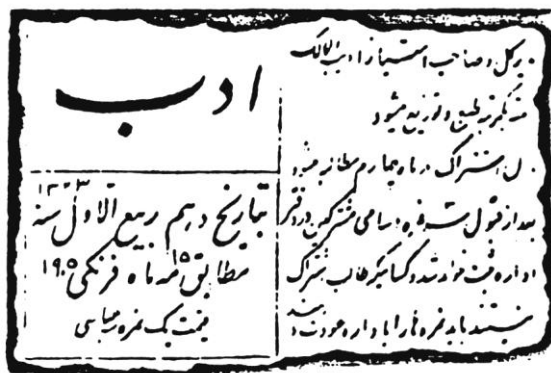 مدیر کل و صاحب امتیاز ادیب الممالک
هفته یکمرتبه طبع و توزیع میشود
اشتراک در ماه چهارم مطالبه میشود
بعد از قبول شده و اسامی مشترکین در دفتر
اداره ثبت خواهد شد و کسانیکه طالب اشتراک
نیستند باید نمره ها را باداره عودت دهند
ادب
بتاریخ دهم ربیع الاول سنه ۱۳۲۳
مطابق ۱۵ ماه فرنگی ۱۹۰۵
قیمت یک نمره عباسی